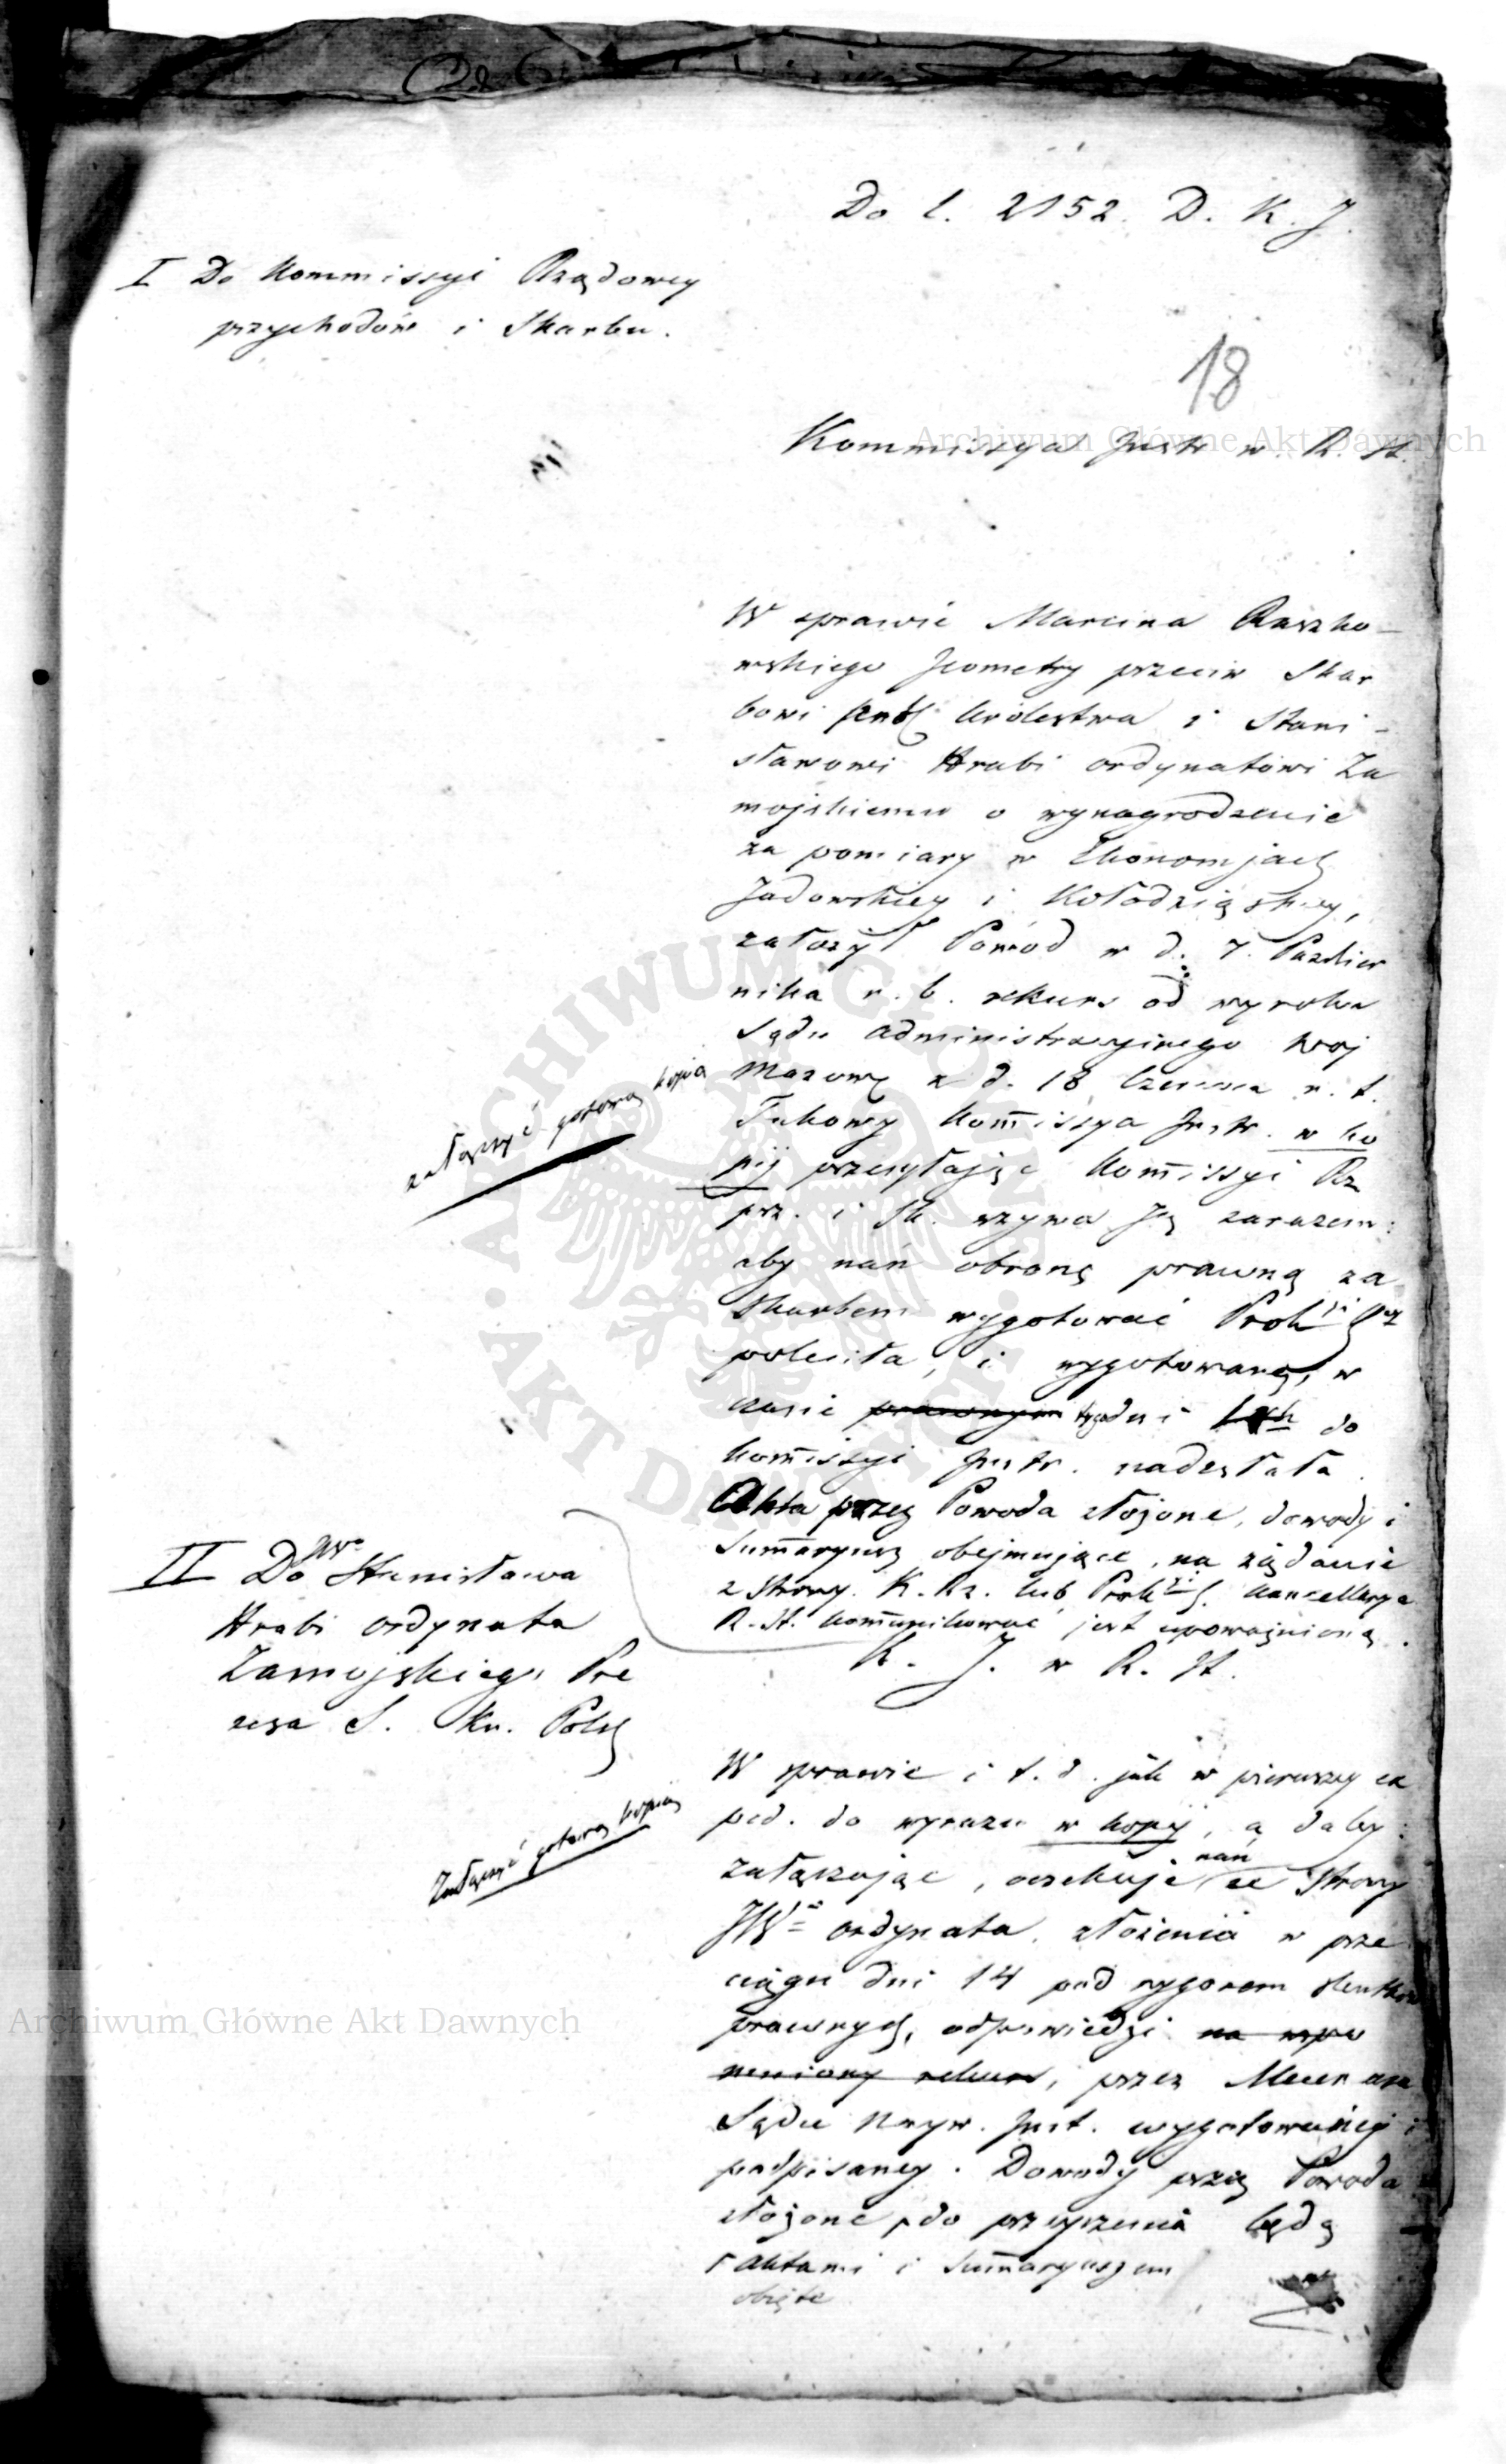 Do l. 2152. D. K. J.
I Do Kommissyi Rządowey
przychodów i Skarbu.
18
Kommissya Instr w R. St.
W sprawie Marcina Raszko-
wskiego Jeometry przeciw Skar
bowi Królestwa i Stani-
sławowi Hrabi ordynatowi Za
mojskiemu o wynagrodzenie
za pomiary w Ekonomjach
Jadowskiey i Kołodziąskiey,
założył Powód w d. 7. Pazdier
nika r. b. rekurs od wyroku
Sądu Administracyjnego Woj
Mazow z d. 18 Czerwca r. t.
Takowy Kommissya Instr. w ko
pij przesyłając Kommissyi Rz
prz. i Sk. wzywa Ją zarazem:
aby nań obronę prawną za
Skarbem wygotować Prok
poleciła, i wygotowaną, w
czasie prawnym tygodni do
Kommissyi Instr. nadesłała.
załączyć gotową kopią
Akta przez Powoda złożone, dowody i
Summaryusz obejmujące, na żądanie
z Strony K. Rz. lub Prok Kancellarya
R. St. kommunikować jest upoważnioną.
K. J. w R. St.
II Do JWo Stanisława
Hrabi ordynata
Zamojskiego Pre
zesa S. Kr. Polsk
W sprawie i t. d. jak w pierwszey ex
ped. do wyrazu w kopij, a daley:
załączając, oczekuje nań ze Strony
JWo ordynata, złożenia w prze
ciągu dni 14 pod rygorem skutków
prawnych, odpowiedzi na wspo
mniony rekurs, przez Mecenasa
Sądu Nayw. Inst. wygotowaney i
podpisaney. Dowody przez Powoda
złożone do przeyrzenia będą
Załączyć gotową kopią
aktami i Summaryuszem
objęte
Archiwum Główne Akt Dawnych
Archiwum Główne Akt Dawnych
ARCHIWUM GŁÓWNE • AKT DAWNYCH •